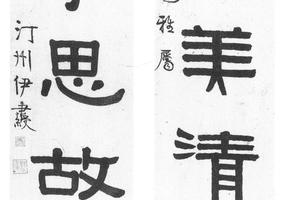 美清
雅屬
思故
汀州伊秉綬